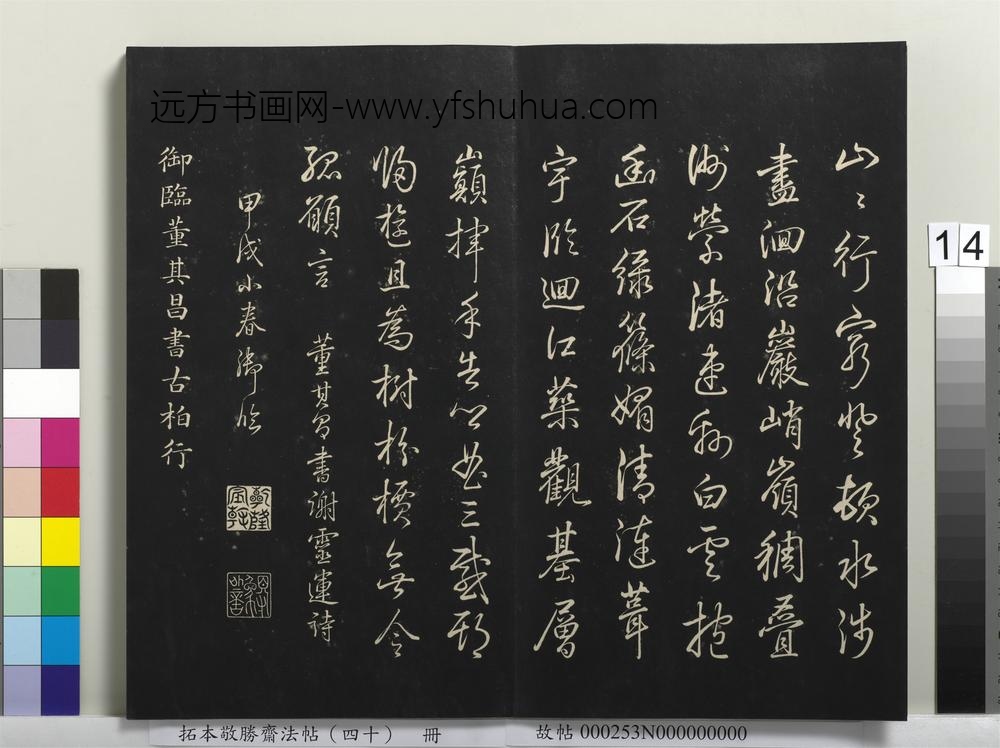 远方书画网-www.yfshuhua.com
山〻行窮登頓水涉
盡洄沿巖峭嶺稠疊
洲縈渚連綿白雲抱
幽石緑篠媚清漣葺
宇臨迴江築觀基層
巔揮手告鄉曲三載期
歸旋且為樹枌檟無令
孤願言 董其昌書謝靈運詩
甲戌小春御臨
乾隆宸翰
御臨董其昌書古柏行
14
拓本敬勝齋法帖（四十） 冊 故帖 000253N000000000